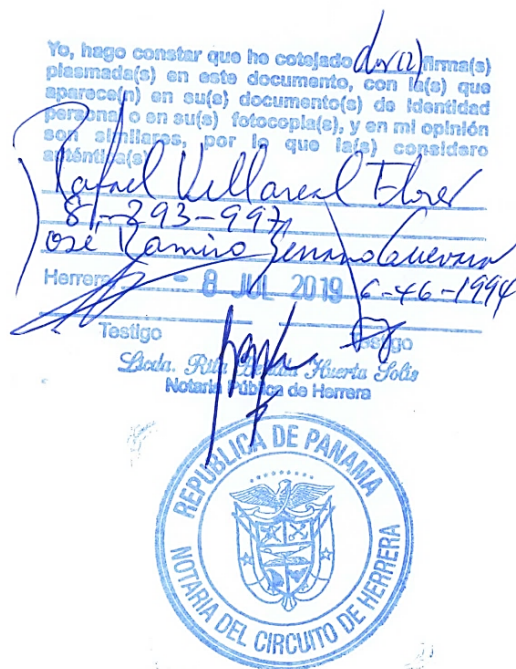 Yo, hago constar que he cotejado dos (2) firma(s)
plasmada(s) en este documento, con la(s) que
aparece(n) en su(s) documento(s) de identidad
personal o en su(s) fotocopia(s), y en mi opinión
son similares, por lo que la(s) considero
auténtica(s)
Rafael Villareal Flores
8-293-997
José Ramiro Serrano Guevara
Herrera - 8 JUL 2019 6-46-1994
Testigo Testigo
Licda. Rita Huerta Solís
Notaria Pública de Herrera
REPUBLICA DE PANAMA
NOTARIA DEL CIRCUITO DE HERRERA